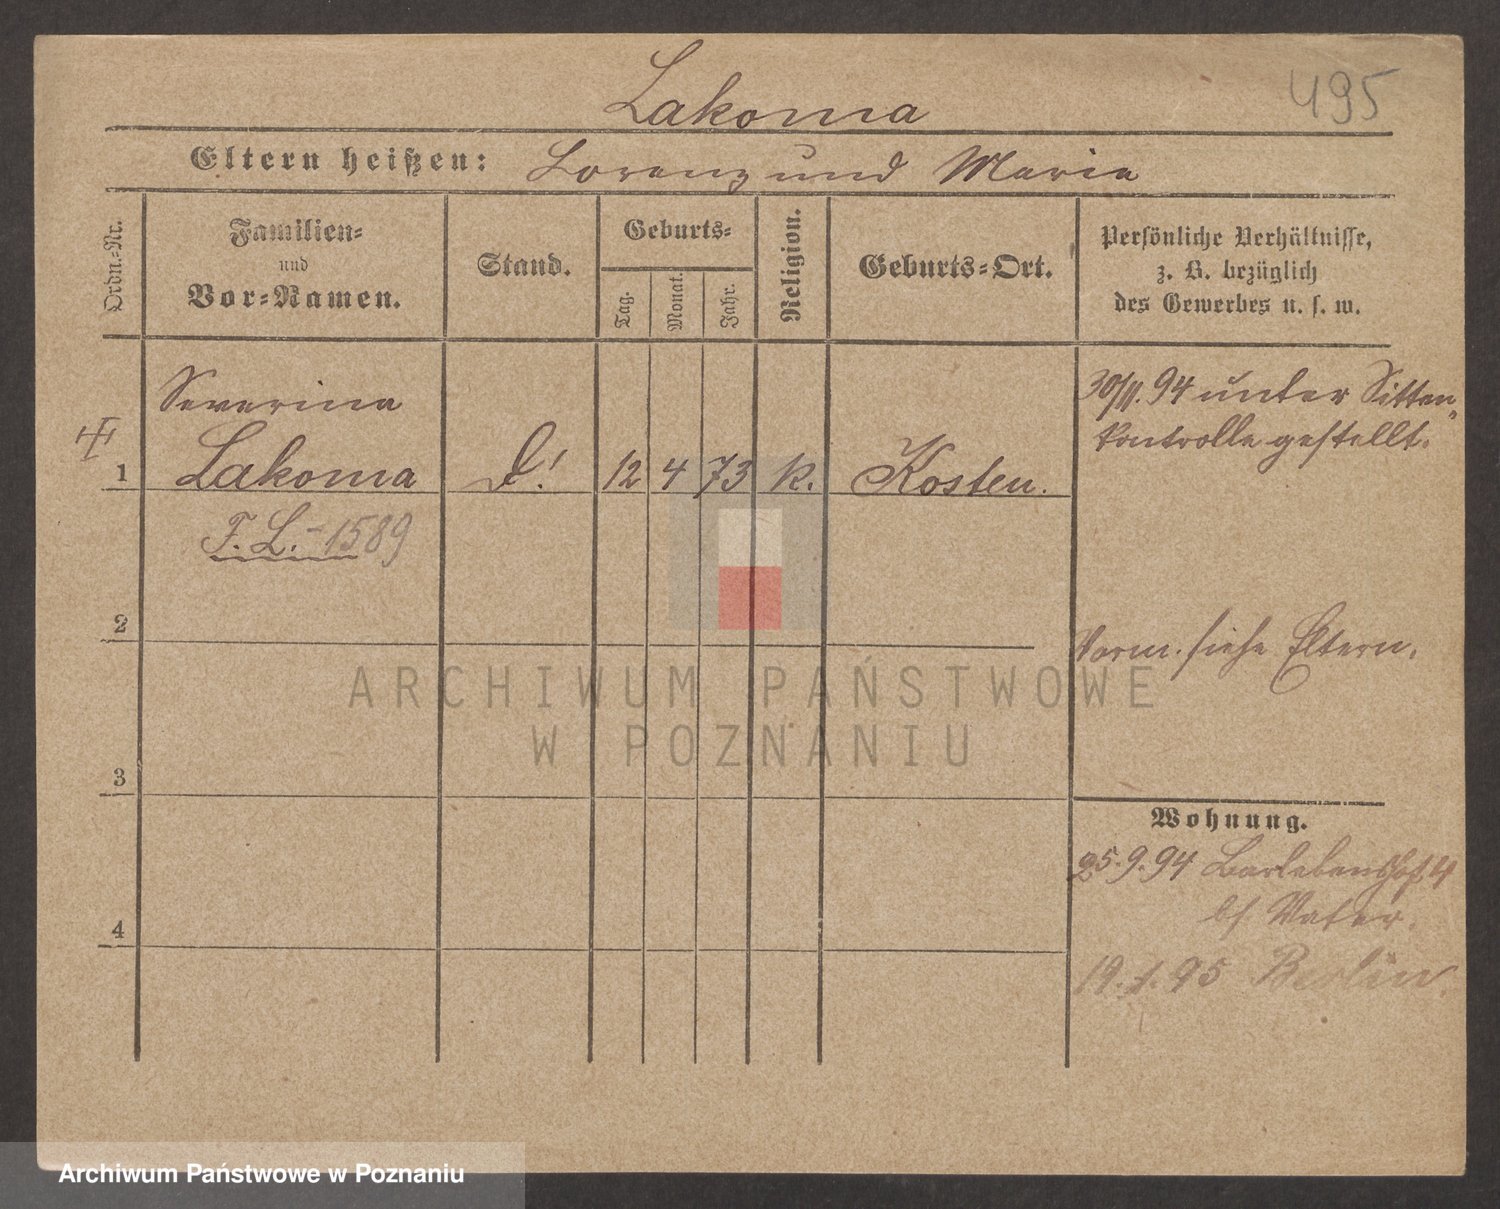 Lakoma
495
Eltern heißen: Lorenz und Maria
Ordn.-Nr.
Familien-
und
Vor-Namen.
Stand.
Geburts-
Tag.
Monat.
Jahr.
Religion.
Geburts-Ort.
Persönliche Verhältnisse,
z. B. bezüglich
des Gewerbes u. s. w.
Severina
1 Lakoma D! 12 4 73 k. Kosten.
30/11. 94 unter Sitten-
kontrolle gestellt.
F. L. - 1589
2
Vorm. siehe Eltern.
3
4
Wohnung.
25.9.94 Barlebenshof 4
bf. Vater.
19.1.95 Berlin.
ARCHIWUM PAŃSTWOWE
W POZNANIU
Archiwum Państwowe w Poznaniu